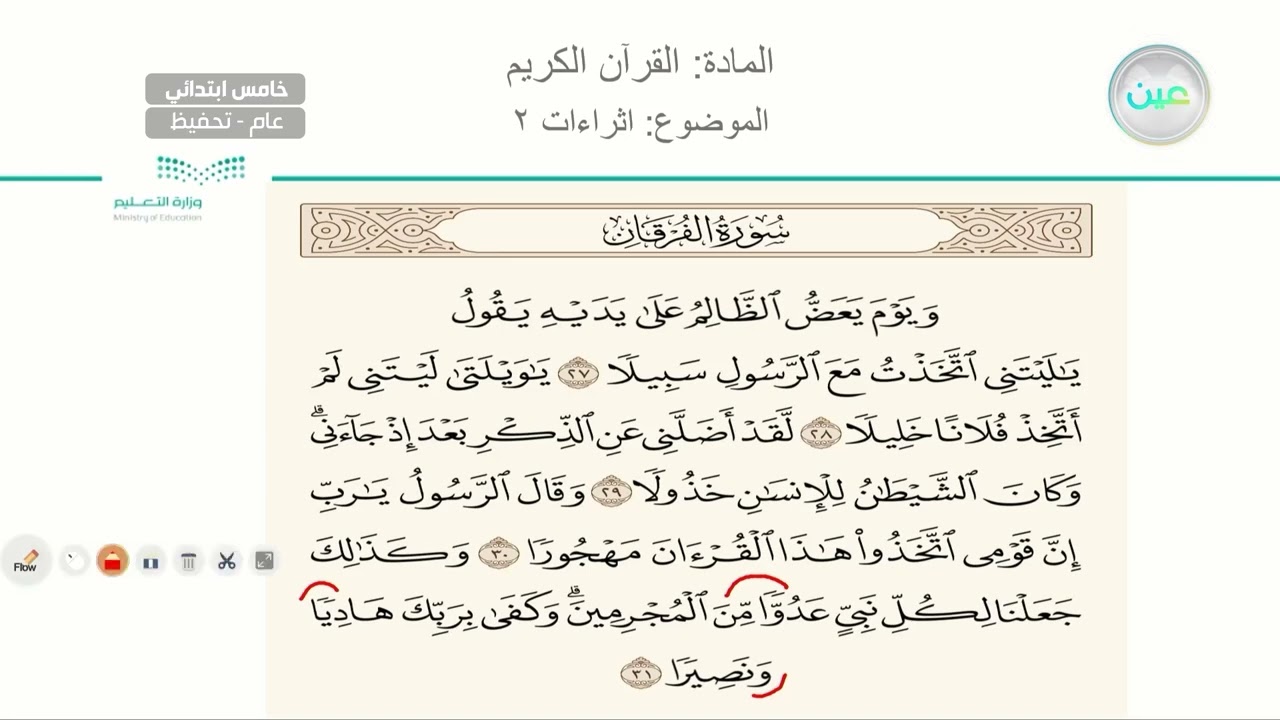 المادة: القرآن الكريم
الموضوع: اثراءات ٢
خامس ابتدائي
عام - تحفيظ
عين
وزارة التعليم
Ministry of Education
سُورَةُ الفُرْقَانِ
وَيَوْمَ يَعَضُّ ٱلظَّالِمُ عَلَىٰ يَدَيْهِ يَقُولُ
يَٰلَيْتَنِى ٱتَّخَذْتُ مَعَ ٱلرَّسُولِ سَبِيلًا ٢٧ يَٰوَيْلَتَىٰ لَيْتَنِى لَمْ
أَتَّخِذْ فُلَانًا خَلِيلًا ٢٨ لَّقَدْ أَضَلَّنِى عَنِ ٱلذِّكْرِ بَعْدَ إِذْ جَآءَنِىۗ
وَكَانَ ٱلشَّيْطَٰنُ لِلْإِنسَٰنِ خَذُولًا ٢٩ وَقَالَ ٱلرَّسُولُ يَٰرَبِّ
إِنَّ قَوْمِى ٱتَّخَذُوا۟ هَٰذَا ٱلْقُرْءَانَ مَهْجُورًا ٣٠ وَكَذَٰلِكَ
جَعَلْنَا لِكُلِّ نَبِىٍّ عَدُوًّا مِّنَ ٱلْمُجْرِمِينَۗ وَكَفَىٰ بِرَبِّكَ هَادِيًا
وَنَصِيرًا ٣١
Flow